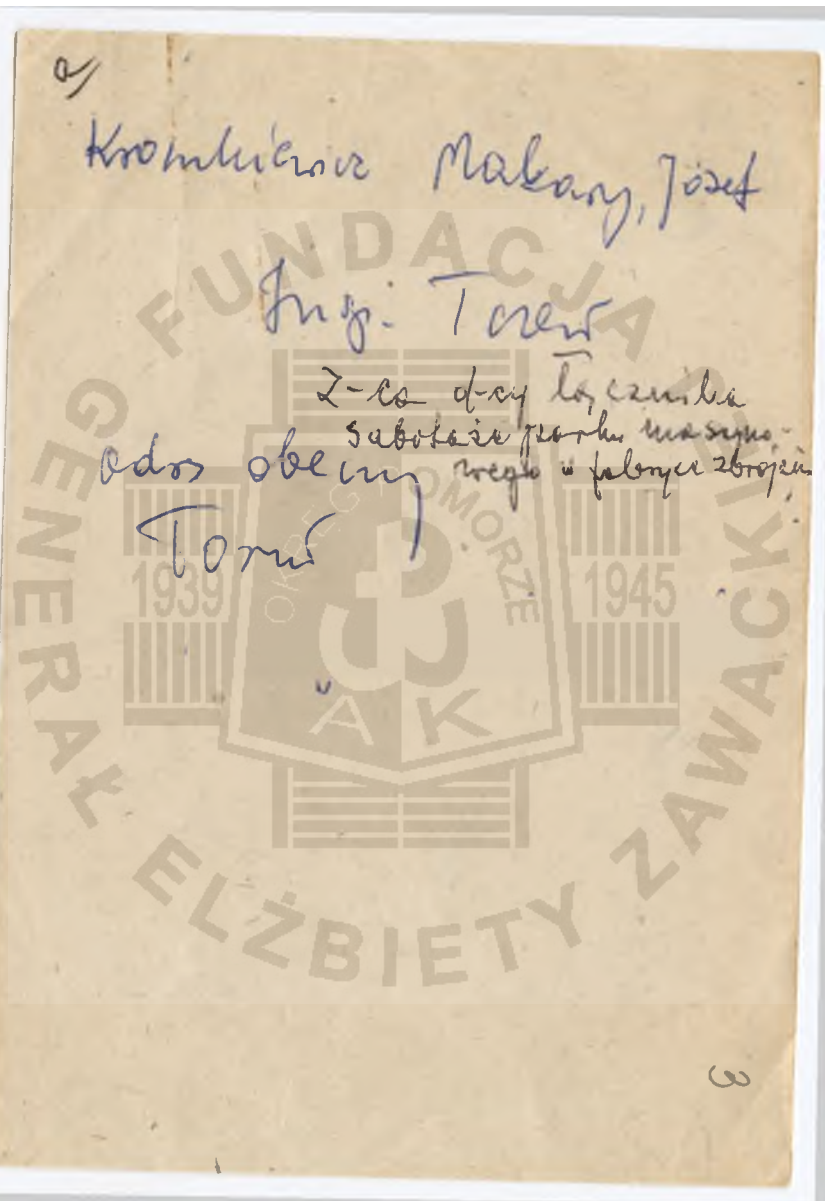 a)
Kromkiewicz Makary, Józef
Insp. Tczew
Z-ca d-cy łącznika
Sabotaże parku maszyno-
wego w fabryce zbrojen.
adres obecny
Toruń
FUNDACJA GENERAŁ ELŻBIETY ZAWACKIEJ
OKRĘG POMORZE
1939
1945
AK
3